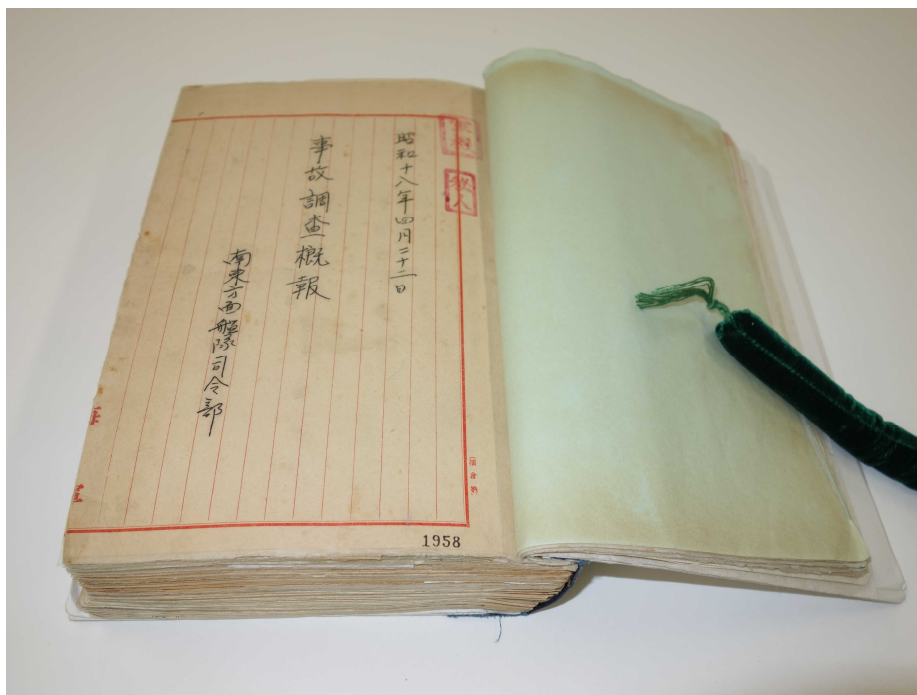 昭和十八年四月二十二日
事故調査概報
南東方面艦隊司令部
海
軍
1958